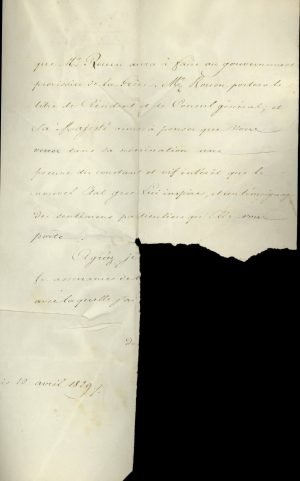 que Mr. Rouen aura à faire au gouvernement
provisoire de la Grèce. Mr. Rouen portera le
titre de Résident et de Consul général; et
Sa Majesté aime à penser que Vous
verrez dans sa nomination une
preuve du constant et vif intérêt que le
nouvel Etat grec Lui inspire, et un témoignage
des sentiments particuliers qu'Elle vous
porte.
Agréez, je
les assurances de la
avec laquelle j'ai
10 avril 1829